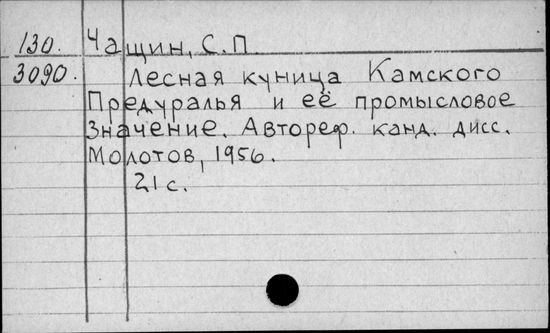 130. Чащин, С.П.
3090. Лесная куница Камского
Предуралья и её промысловое
значение. Автореф. канд. дисс.
Молотов, 1956.
21 с.